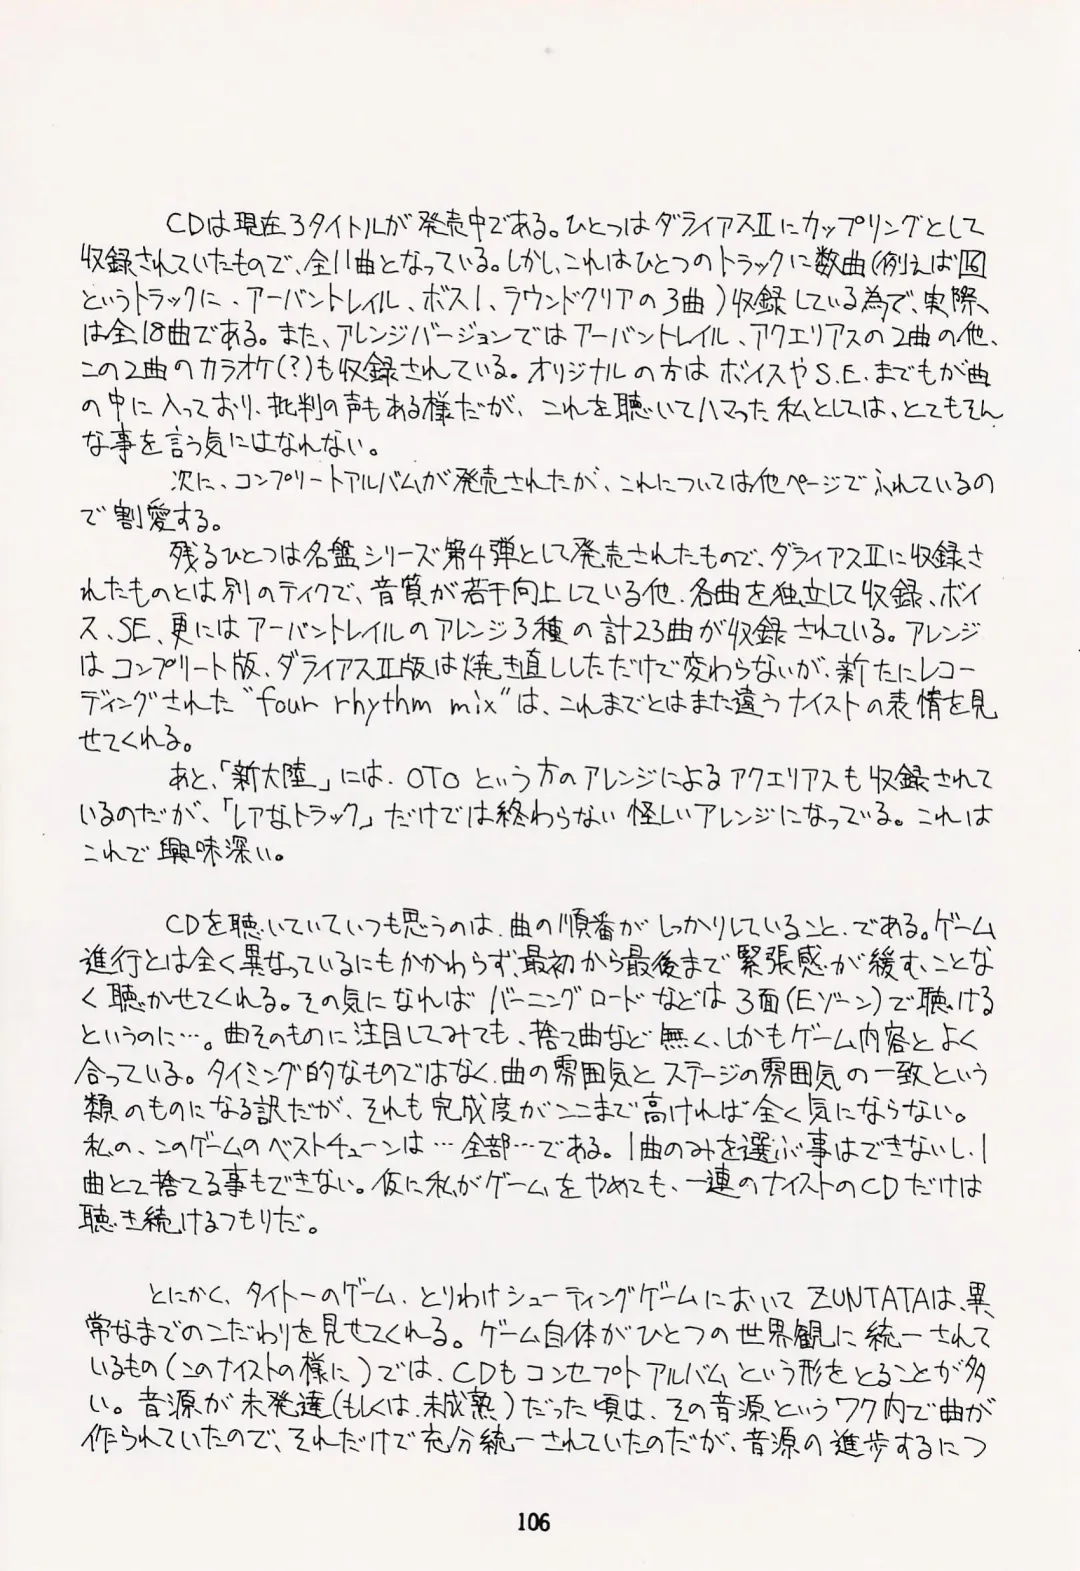 CDは現在3タイトルが発売中である。ひとつはダライアスⅡにカップリングとして
収録されていたもので、全11曲となっている。しかし、これはひとつのトラックに数曲(例えば16
というトラックに、アーバントレイル、ボス1、ラウンドクリアの3曲)収録している為で、実際、
は全18曲である。また、アレンジバージョンではアーバントレイル、アクエリアスの2曲の他、
この2曲のカラオケ(?)も収録されている。オリジナルの方はボイスやS.E.までもが曲
の中に入っており、批判の声もある様だが、これを聴いてハマった私としては、とてもそん
な事を言う気にはなれない。
次に、コンプリートアルバムが発売されたが、これについては他ページでふれているの
で割愛する。
残るひとつは名盤シリーズ第4弾として発売されたもので、ダライアスⅡに収録さ
れたものとは別のテイクで、音質が若干向上している他、各曲を独立して収録、ボイ
ス、SE、更にはアーバントレイルのアレンジ3種の計23曲が収録されている。アレンジ
はコンプリート版、ダライアスⅡ版は焼き直ししただけで変わらないが、新たにレコー
ディングされた"four rhythm mix"は、これまでとはまた違うナイストの表情を見
せてくれる。
あと、「新大陸」には、OTOという方のアレンジによるアクエリアスも収録されて
いるのだが、「レアなトラック」だけでは終わらない怪しいアレンジになっている。これは
これで興味深い。
CDを聴いていていつも思うのは、曲の順番がしっかりしていること、である。ゲーム
進行とは全く異なっているにもかかわらず、最初から最後まで緊張感が緩む、ことな
く聴かせてくれる。その気になればバーニングロードなどは3面(Eゾーン)で聴ける
というのに…。曲そのものに注目してみても、捨て曲など無く、しかもゲーム内容とよく
合っている。タイミング的なものではなく、曲の雰囲気とステージの雰囲気の一致という
類のものになる訳だが、それも完成度がここまで高ければ全く気にならない。
私の、このゲームのベストチューンは…全部…である。1曲のみを選ぶ事はできないし、1
曲とて捨てる事もできない。仮に私がゲームをやめても、一連のナイストのCDだけは
聴き続けるつもりだ。
とにかく、タイトーのゲーム、とりわけシューティングゲームにおいてZUNTATAは、異
常なまでのこだわりを見せてくれる。ゲーム自体がひとつの世界観に統一されて
いるもの(このナイストの様に)では、CDもコンセプトアルバムという形をとることが多
い。音源が未発達(もしくは、未成熟)だった頃は、その音源というワク内で曲が
作られていたので、それだけで充分統一されていたのだが、音源の進歩するにつ
106